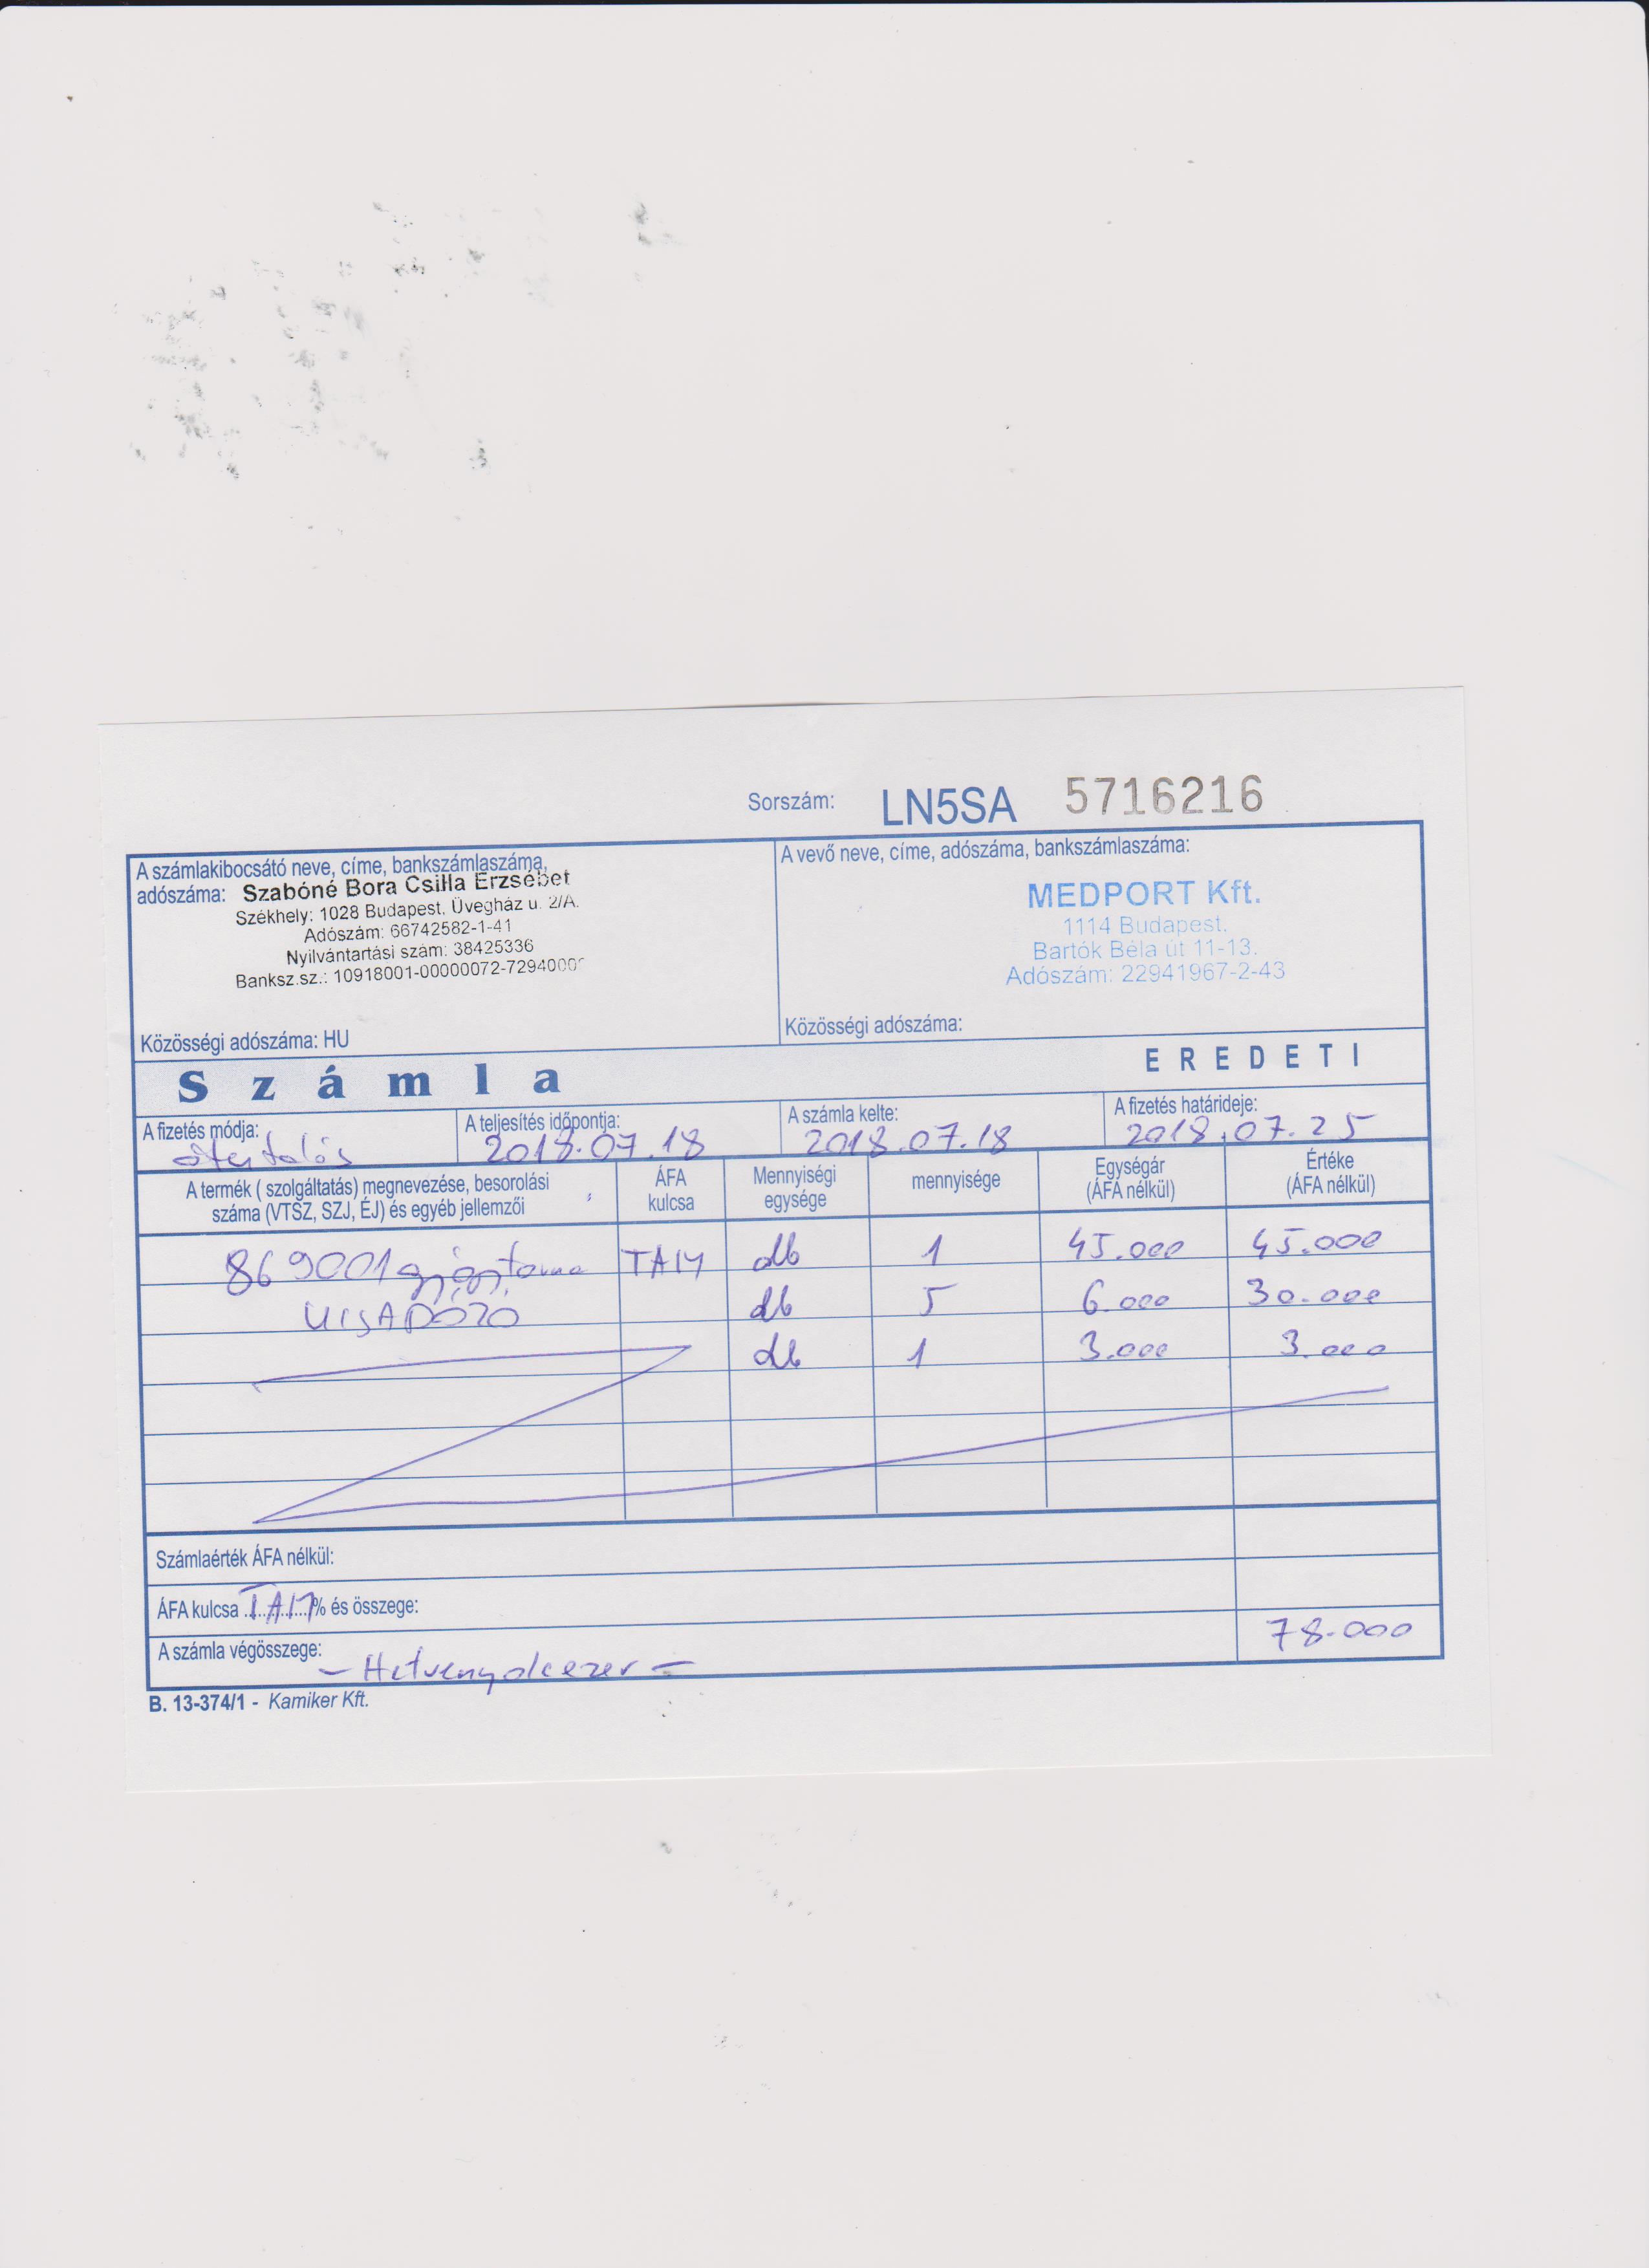 Sorszám: LN5SA 5716216
A számlakibocsátó neve, címe, bankszámlaszáma,
adószáma: Szabóné Bora Csilla Erzsébet
Székhely: 1028 Budapest, Üvegház u. 2/A.
Adószám: 66742582-1-41
Nyilvántartási szám: 38425336
Banksz.sz.: 10918001-00000072-7294000
Közösségi adószáma: HU
A vevő neve, címe, adószáma, bankszámlaszáma:
MEDPORT Kft.
1114 Budapest,
Bartók Béla út 11-13.
Adószám: 22941967-2-43
Közösségi adószáma:
Számla
EREDETI
A fizetés módja:
átutalás
A teljesítés időpontja:
2018.07.18
A számla kelte:
2018.07.18
A fizetés határideje:
2018.07.25
A termék ( szolgáltatás) megnevezése, besorolási
száma (VTSZ, SZJ, ÉJ) és egyéb jellemzői
ÁFA
kulcsa
Mennyiségi
egysége
mennyisége
Egységár
(ÁFA nélkül)
Értéke
(ÁFA nélkül)
869001 gyógytorna TAM db 1 45.000 45.000
KISADÓZÓ db 5 6.000 30.000
db 1 3.000 3.000
Számlaérték ÁFA nélkül:
ÁFA kulcsa TAM % és összege:
A számla végösszege: - Hetvennyolcezer - 78.000
B. 13-374/1 - Kamiker Kft.